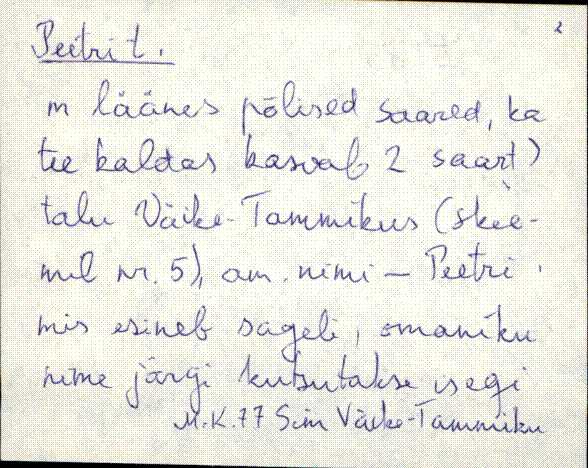 2
Peetri t.
m läänes põlised saared, ka
tee kaldas kasvab 2 saart)
talu Väike-Tammikus (skee-
mil nr. 5), am. nimi – Peetri.
mis esineb sageli, omaniku
nime järgi kutsutakse isegi
M.K.77 Sim Väike-Tammiku